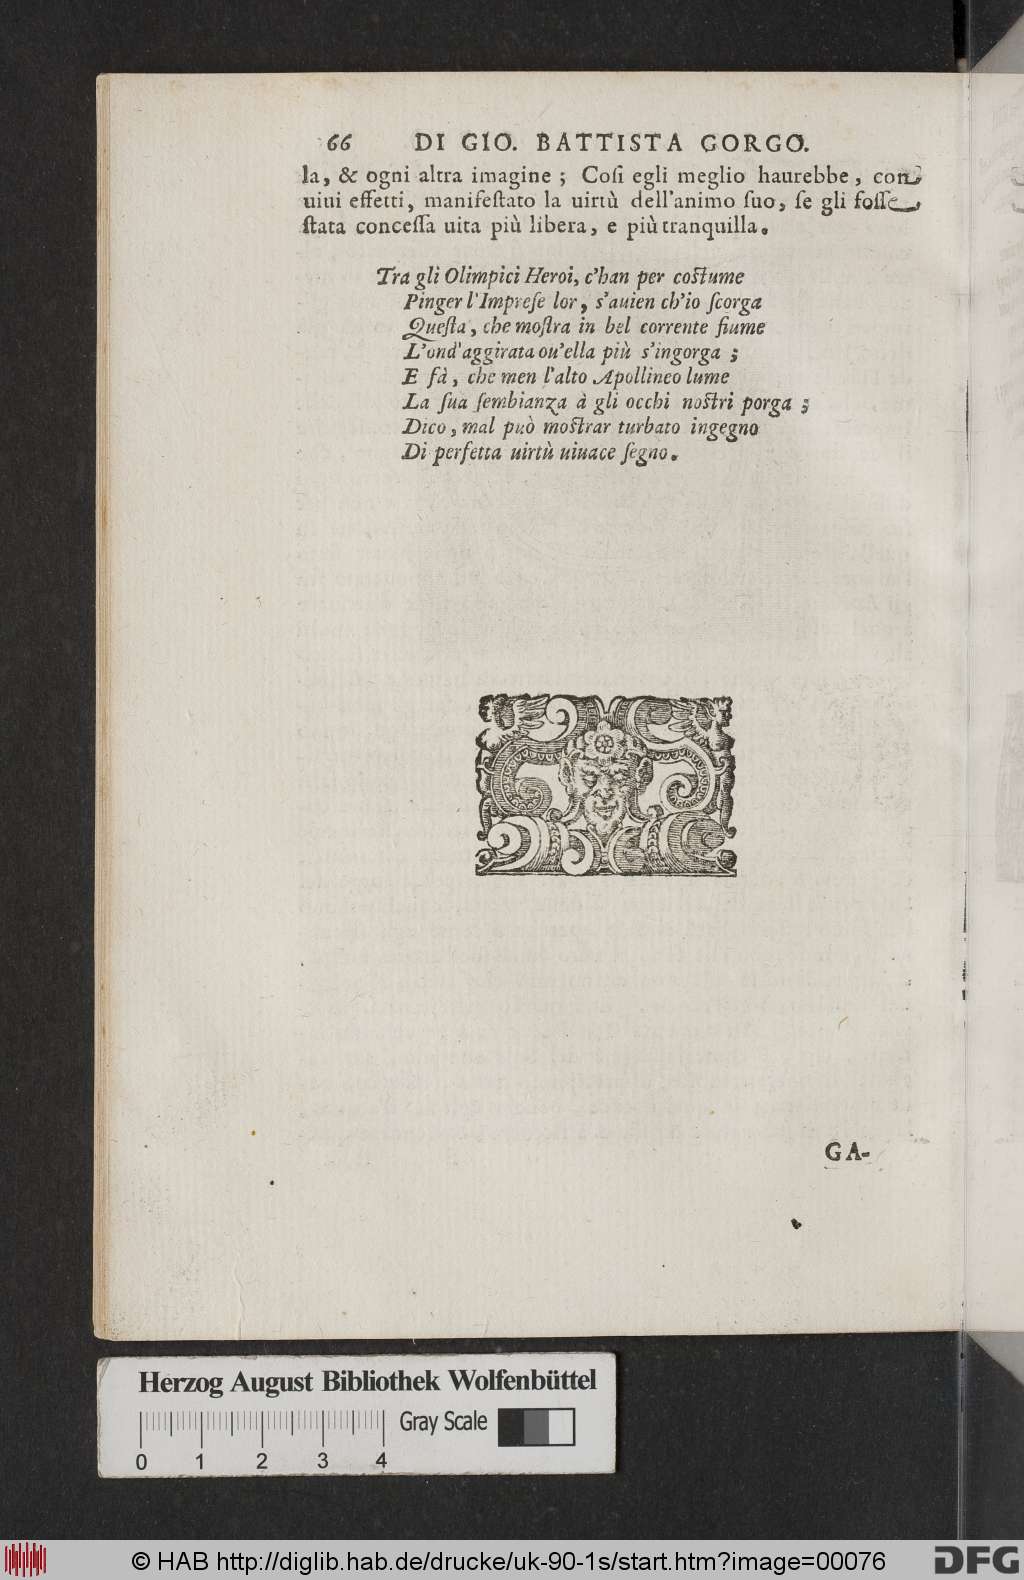 66 DI GIO. BATTISTA GORGO.
la, & ogni altra imagine ; Coſi egli meglio haurebbe, con
uiui effetti, manifeſtato la uirtù dell'animo ſuo, ſe gli foſſe
ſtata conceſſa uita più libera, e più tranquilla.
Tra gli Olimpici Heroi, c'han per coſtume
Pinger l'Impreſe lor, s'auien ch'io ſcorga
Queſta, che moſtra in bel corrente fiume
L'ond'aggirata ou'ella più s'ingorga ;
E fà, che men l'alto Apollineo lume
La ſua ſembianza à gli occhi noſtri porga ;
Dico, mal può moſtrar turbato ingegno
Di perfetta uirtù uiuace ſegno.
GA-
Herzog August Bibliothek Wolfenbüttel
Gray Scale
0 1 2 3 4
© HAB http://diglib.hab.de/drucke/uk-90-1s/start.htm?image=00076
DFG